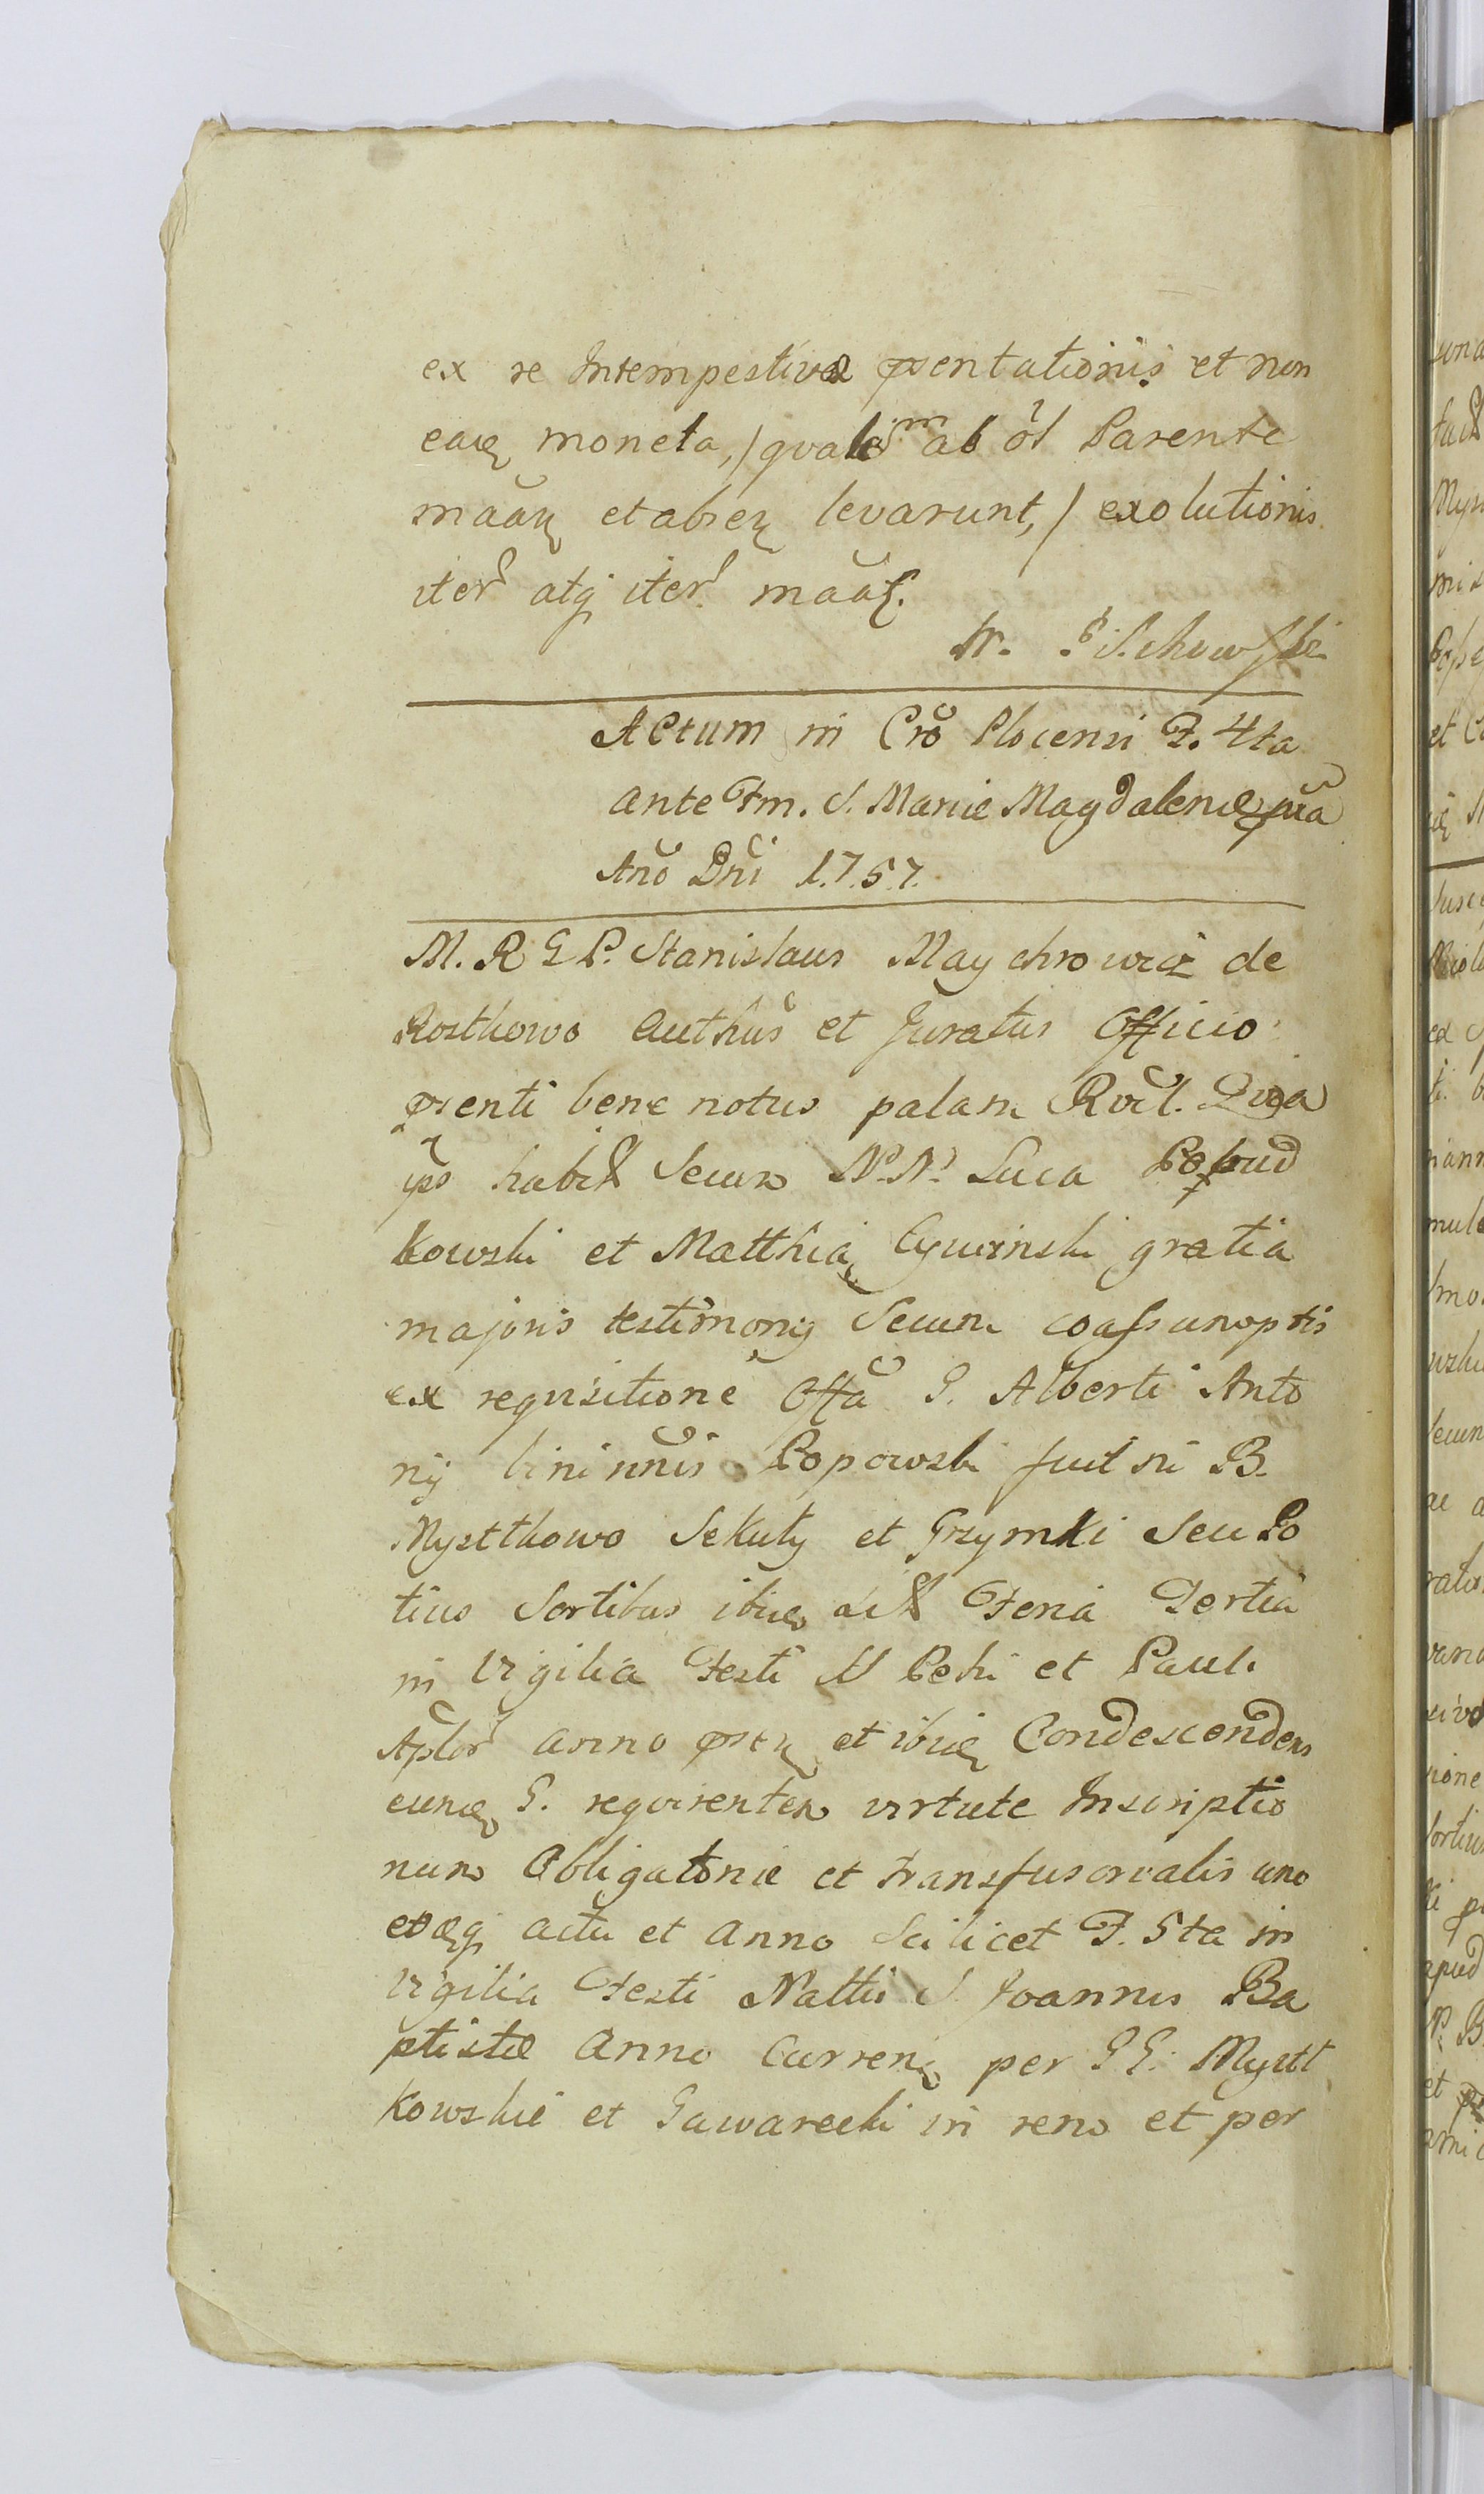 ex re Intempestivæ pręntationis et non
eadę moneta, /qualem ab ol Parente
maãrę et absę levarunt,/ exolutionis
iter atqȝ iter maãt.
W. Pilchowski
Actum in Crõ Plocensi F. 4ta
ante Fm. S. Mariæ Magdalenæ prã
Anõ Dñi 1.7.5.7.
M. R G P. Stanislaus Maychrowicz de
Rosthowo Authûs et Juratus Officio
prsenti bene notus palam Rvcl. Quia
ips habitis Secum N.N. Luca Popud
kowski et Matthia Cywinski gratia
majoris testimonij Secum coassumptis
ex requisitione Offã G. Alberti Anto
nij bininnis Popowski fuit in B.
Mystkowo Sekuły et Grzymki Seu Po
tius Sortibus ibidę dictis Feria Tertia
in Vigilia Festi SS Petri et Pauli
Aplor anno prsę et ibidę Condescendens
eundę G. requirentem virtute Inscriptio
num Obligatoriæ et transfusorialis uno
eodęqȝ actu et anno Scilicet F. 5ta in
Vigilia Festi Nattis S. Joannis Ba
ptistæ Anno Currenę per GG. Mystt
kowskie et Gawarecki in rem et per